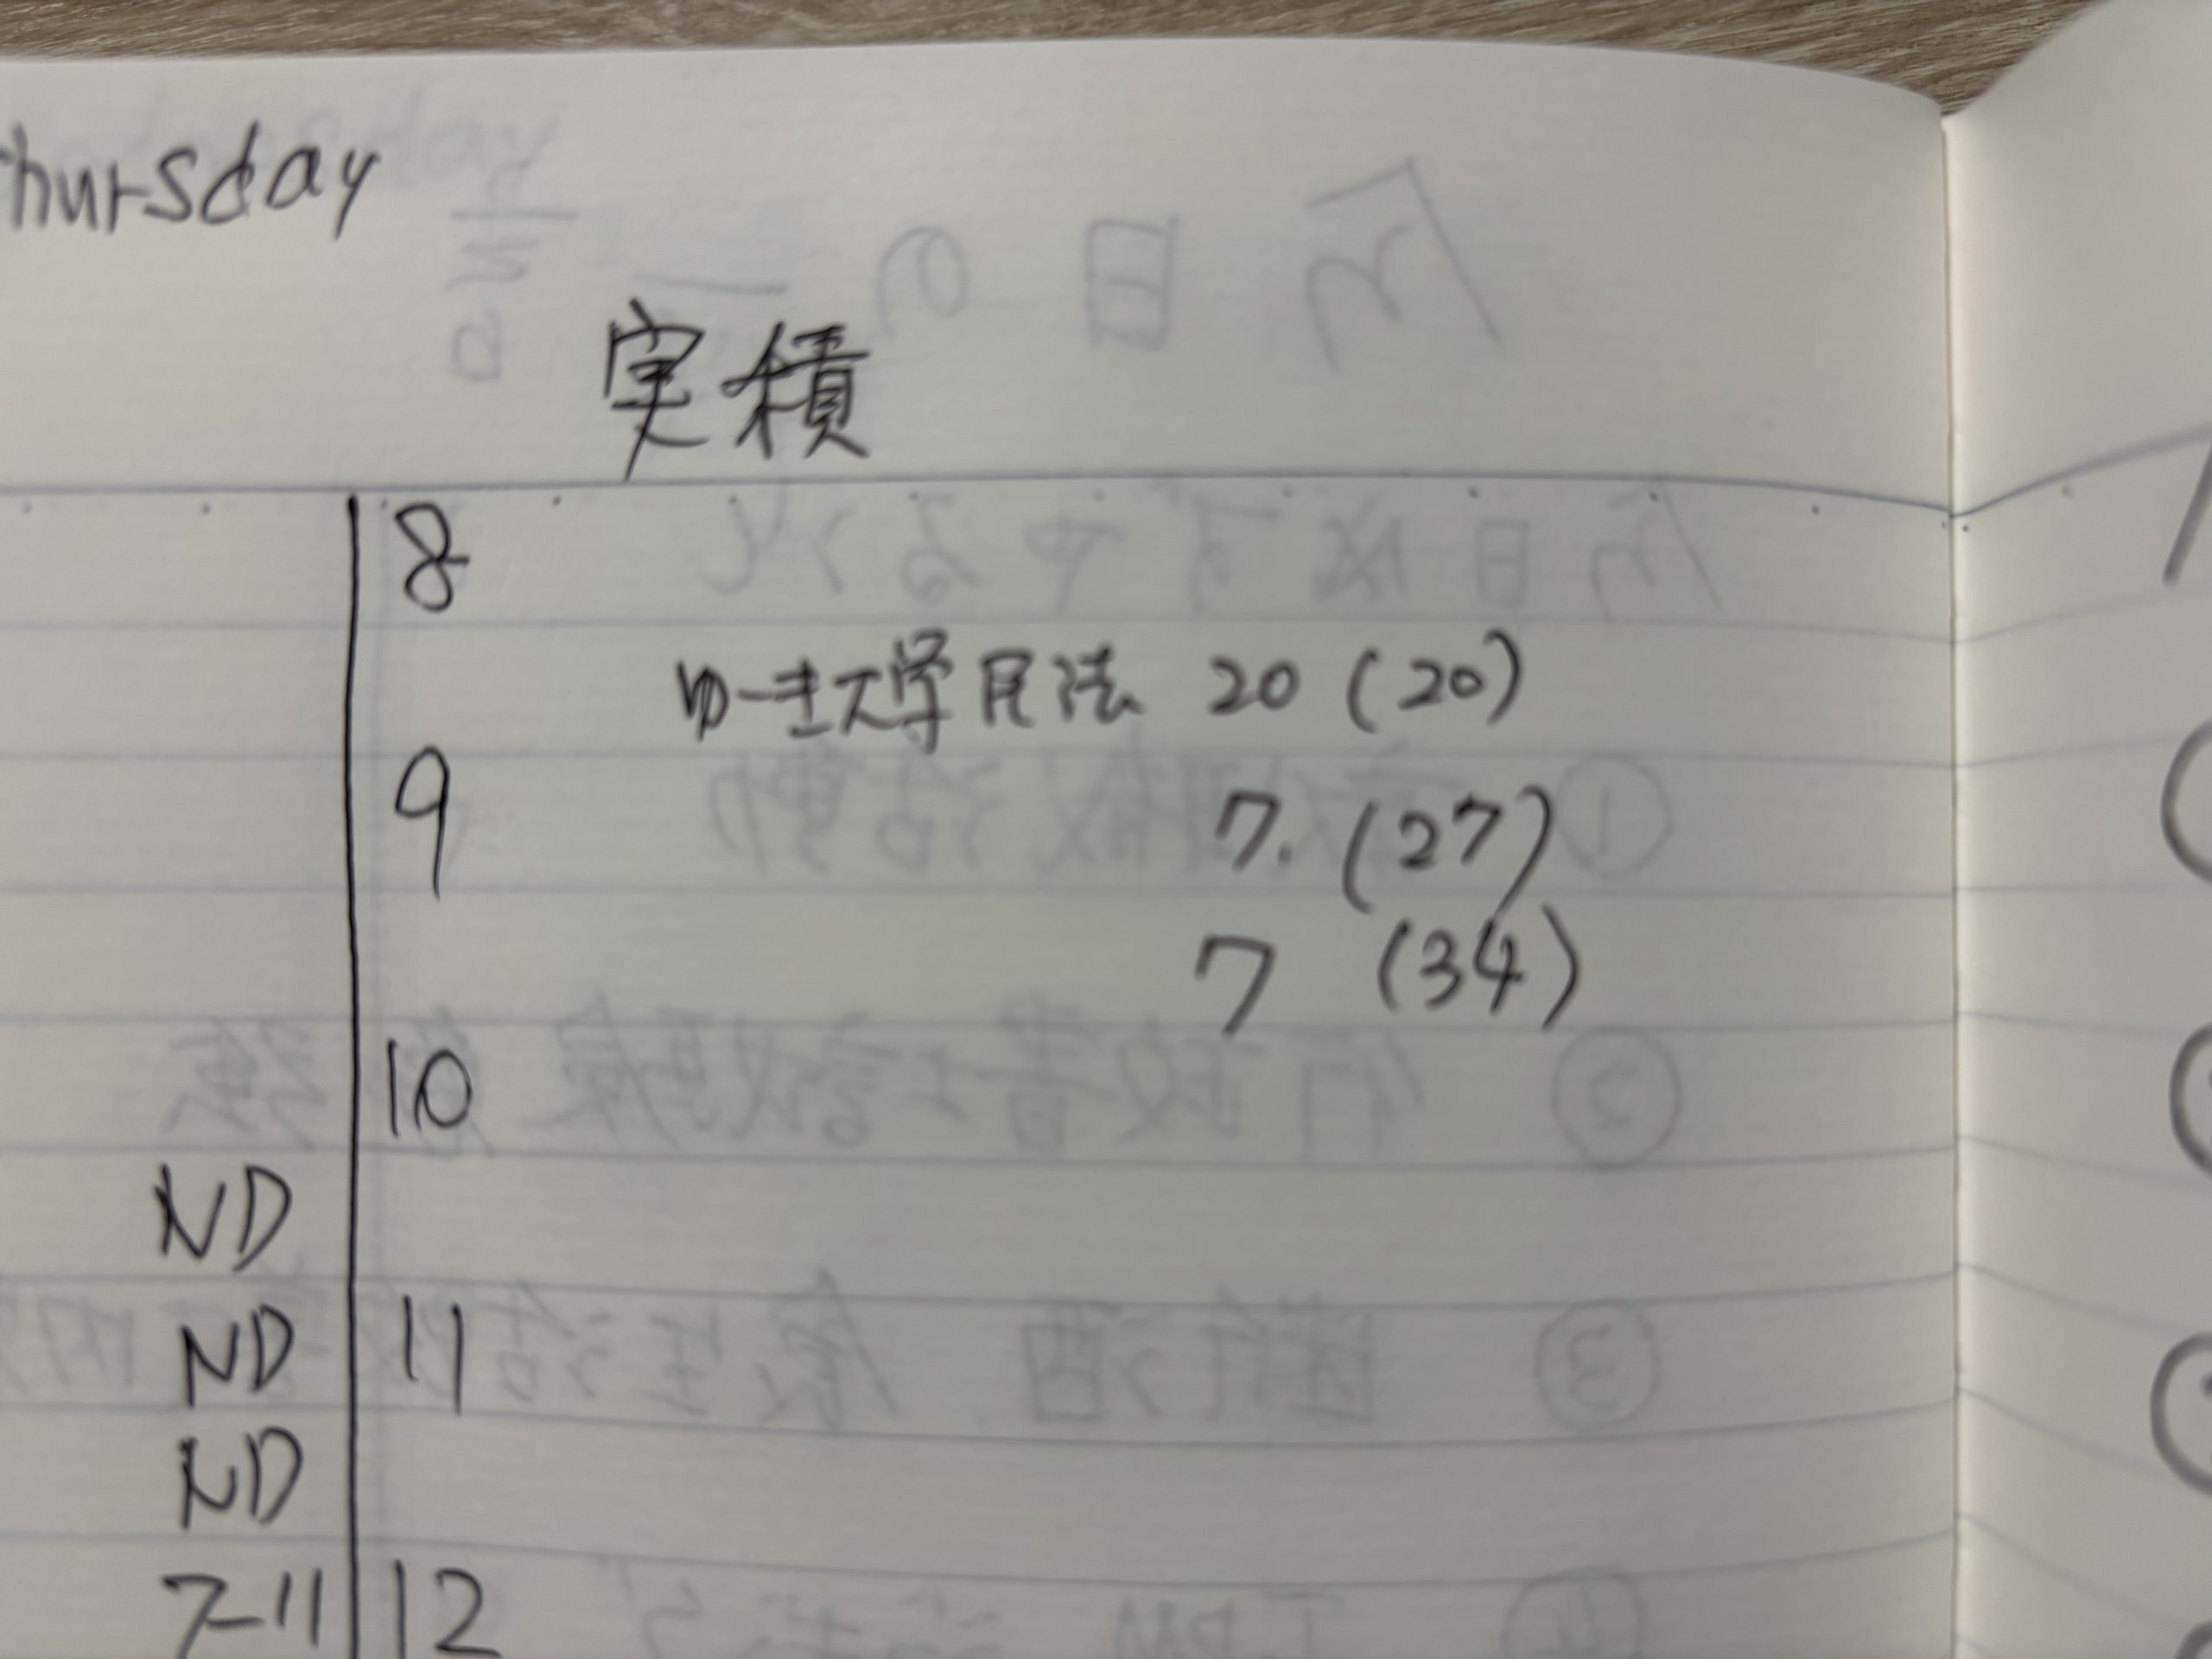 hursday
実積
8
ゆーき大学民法 20 (20)
9 7. (27)
7 (34)
10
ND
ND 11
ND
7-11 12